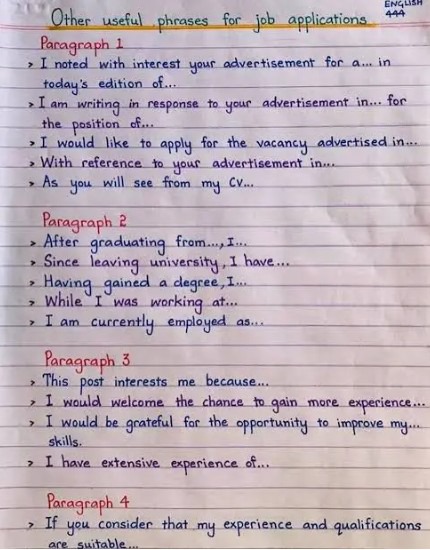 ENGLISH
444
Other useful phrases for job applications
Paragraph 1
> I noted with interest your advertisement for a... in
today's edition of...
> I am writing in response to your advertisement in... for
the position of...
> I would like to apply for the vacancy advertised in...
> With reference to your advertisement in...
> As you will see from my CV...
Paragraph 2
> After graduating from..., I...
> Since leaving university, I have...
> Having gained a degree, I...
> While I was working at...
> I am currently employed as...
Paragraph 3
> This post interests me because...
> I would welcome the chance to gain more experience...
> I would be grateful for the opportunity to improve my...
skills.
> I have extensive experience of...
Paragraph 4
> If you consider that my experience and qualifications
are suitable...